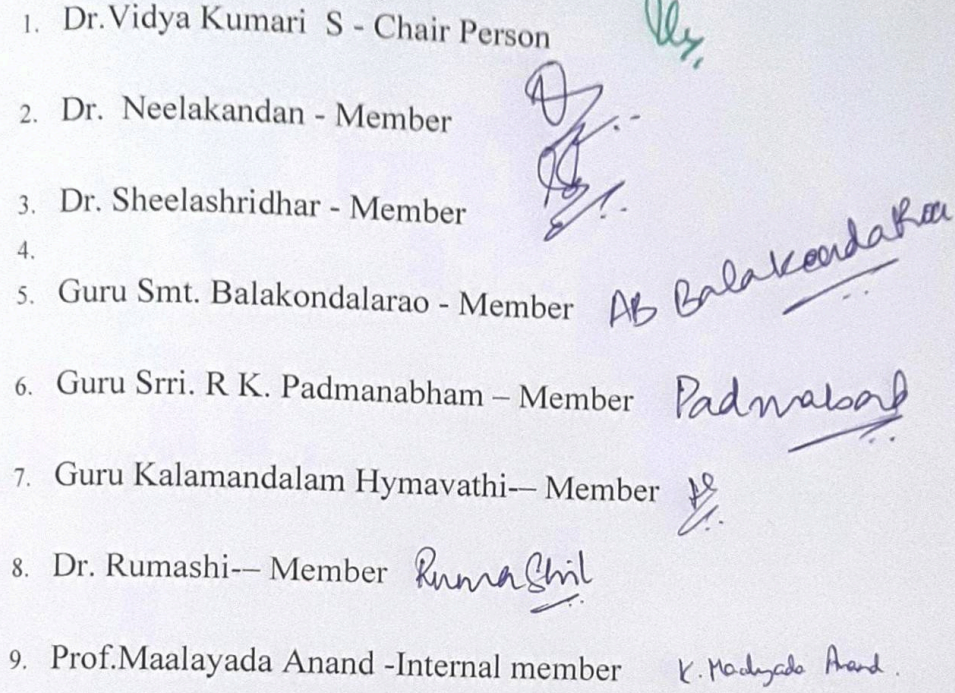 1. Dr.Vidya Kumari S - Chair Person
2. Dr. Neelakandan - Member
3. Dr. Sheelashridhar - Member
4.
5. Guru Smt. Balakondalarao - Member AB Balakondarao
6. Guru Srri. R K. Padmanabham – Member
7. Guru Kalamandalam Hymavathi-– Member
8. Dr. Rumashi-– Member Ruma Shil
9. Prof.Maalayada Anand -Internal member K. Maalyada Anand.